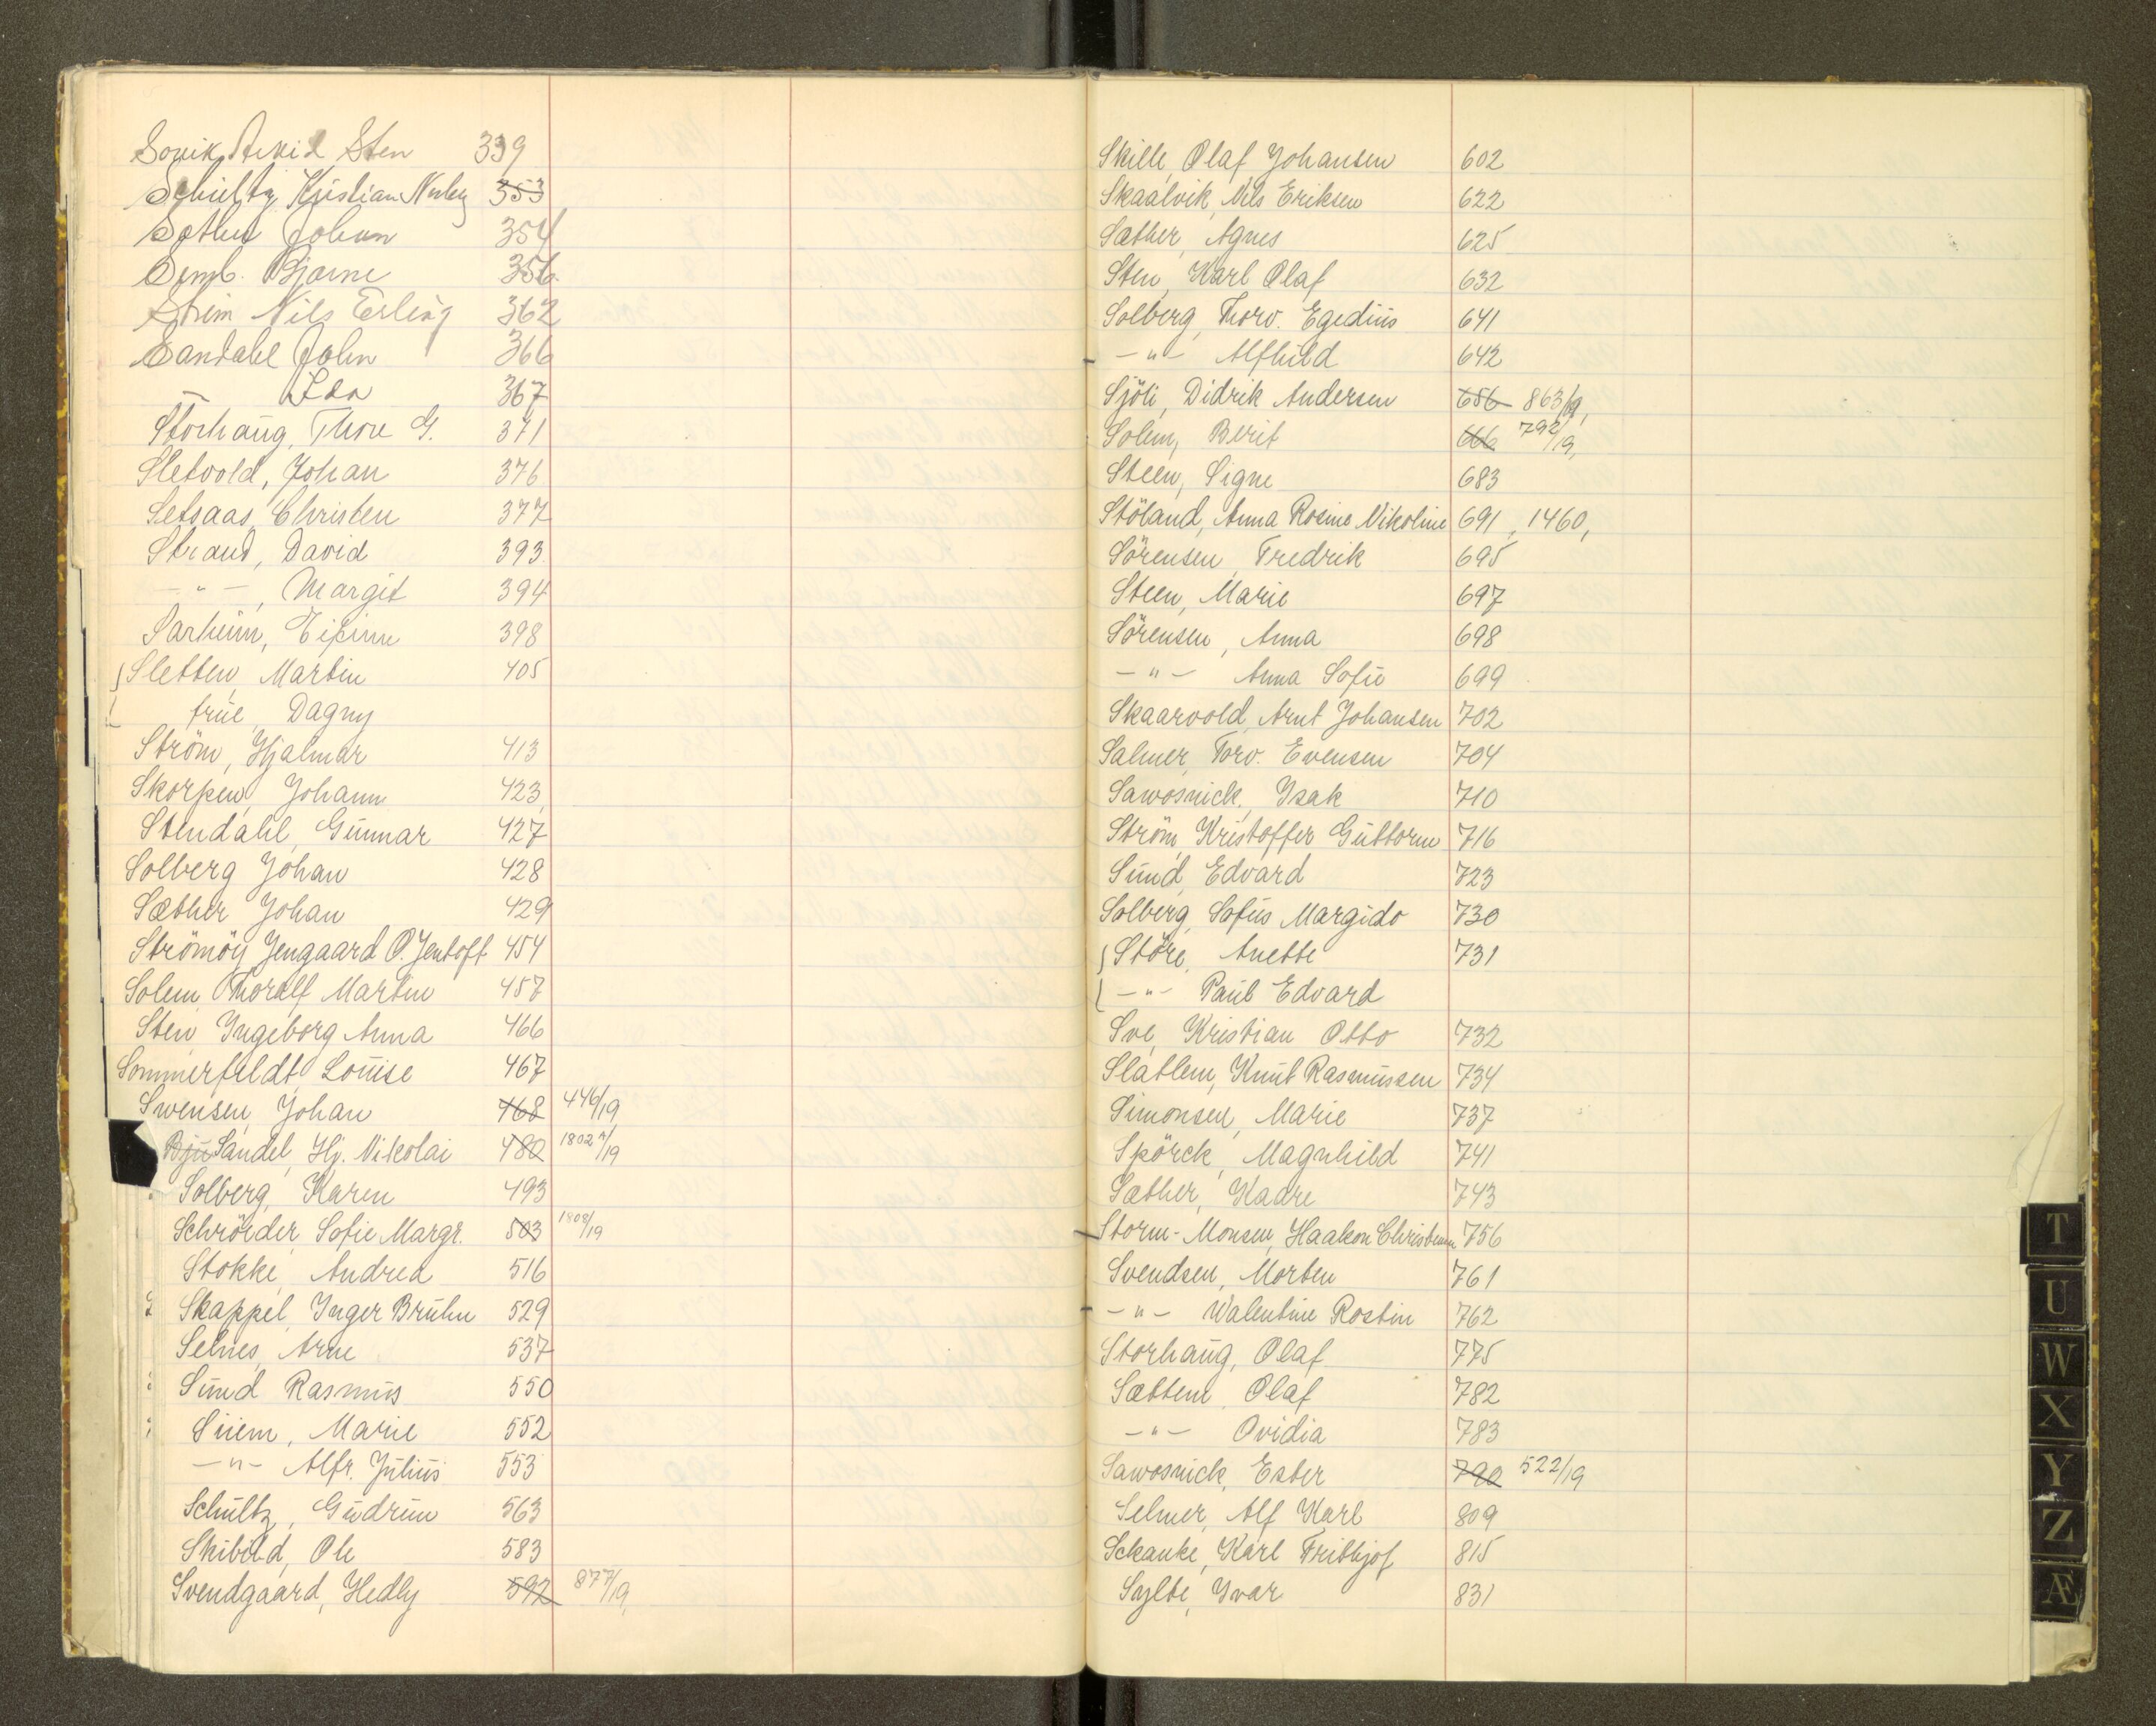 Sovik Arvid Sten 339
Schultz, Kristian Nuley 353
Sother Johan 354
Semb. Bjarne 356
Strim Nils Erling 362
Sandahl John 366
— Lea 367
Storhaug, Thore G. 371
Sletvold, Johan 376
Setsaas, Christen 377
Strand, David 393
— " —, Margit 394
Sarheim, Eifinn 398
Sletten, Martin 405
frue, Dagny
Ström, Hjalmar 413
Skorpen, Johann 423
Stendahl, Gunnar 427
Solberg Johan 428
Sæther Johan 429
Strömöy Jengaard O. Jentoft 454
Solem, Thoralf Martin 457
Sten Ingeborg Anna 466
Sommerfeldt Louise 467
Swensen, Johan 468 446/19
Bju Sandel, Hj. Nikolai 480 1802 /19
Solberg, Karen 493
Schröder, Sofie Margr. 503 1808/19
Stokke, Andrea 516
Skappel, Inger Bruhn 529
Selnes, Arne 537
Sund Rasmus 550
Siiem, Marie 552
— " — Alfr. Julius 553
Schultz, Gudrun 563
Skibeld, Ole 583
Svendgaard, Hedly 592 877/19,
Skille, Olaf Johansen 602
Skaalvik, Nils Eriksen 622
Sæther, Agnes 625
Sten, Karl Olaf 632
Solberg, Thorv. Egedius 641
— " — Alfhild 642
Sjöli, Didrik Andersen 656 863/19,
Solem, Berit 666 792/19,
Steen, Signe 683
Stöland, Anna Rosine Nikoline 691, 1460,
Sörensen, Fredrik 695
Steen, Marie 697
Sörensen, Anna 698
— " — Anna Sofie 699
Skaarvold, Arnt Johansen 702
Salmer, Torv. Evensen 704
Sawosnick, Isak 710
Ström, Kristoffer Guttorm 716
Sund, Edvard 723
Solberg, Sofus Margido 730
Störe, Anette 731
— " — Paul Edvard
Sve, Kristian Otto 732
Slatlem, Knut Rasmussen 734
Simonsen, Marie 737
Spörck, Magnhild 741
Sæther, Kaare 743
Storm-Monsen, Haakon Christensen 756
Svendsen, Morten 761
— " — Valentine Rostin 762
Storhaug, Olaf 775
Sættem, Olaf 782
— " — Ovidia 783
Sawosnick, Ester 790 522/19
Selmer, Alf Karl 809
Sckanke, Karl Frithjof 815
Sylte, Ivar 831
T
U
W
X
Y
Z
Æ